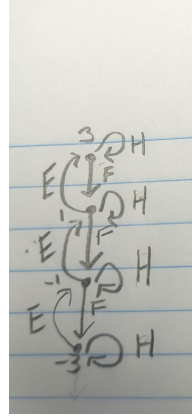 3 H
E F
1 H
E F
-1 H
E F
-3 H